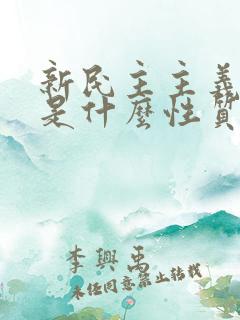 新民主主義
是什麼性質
李興禹
未經同意禁止轉載